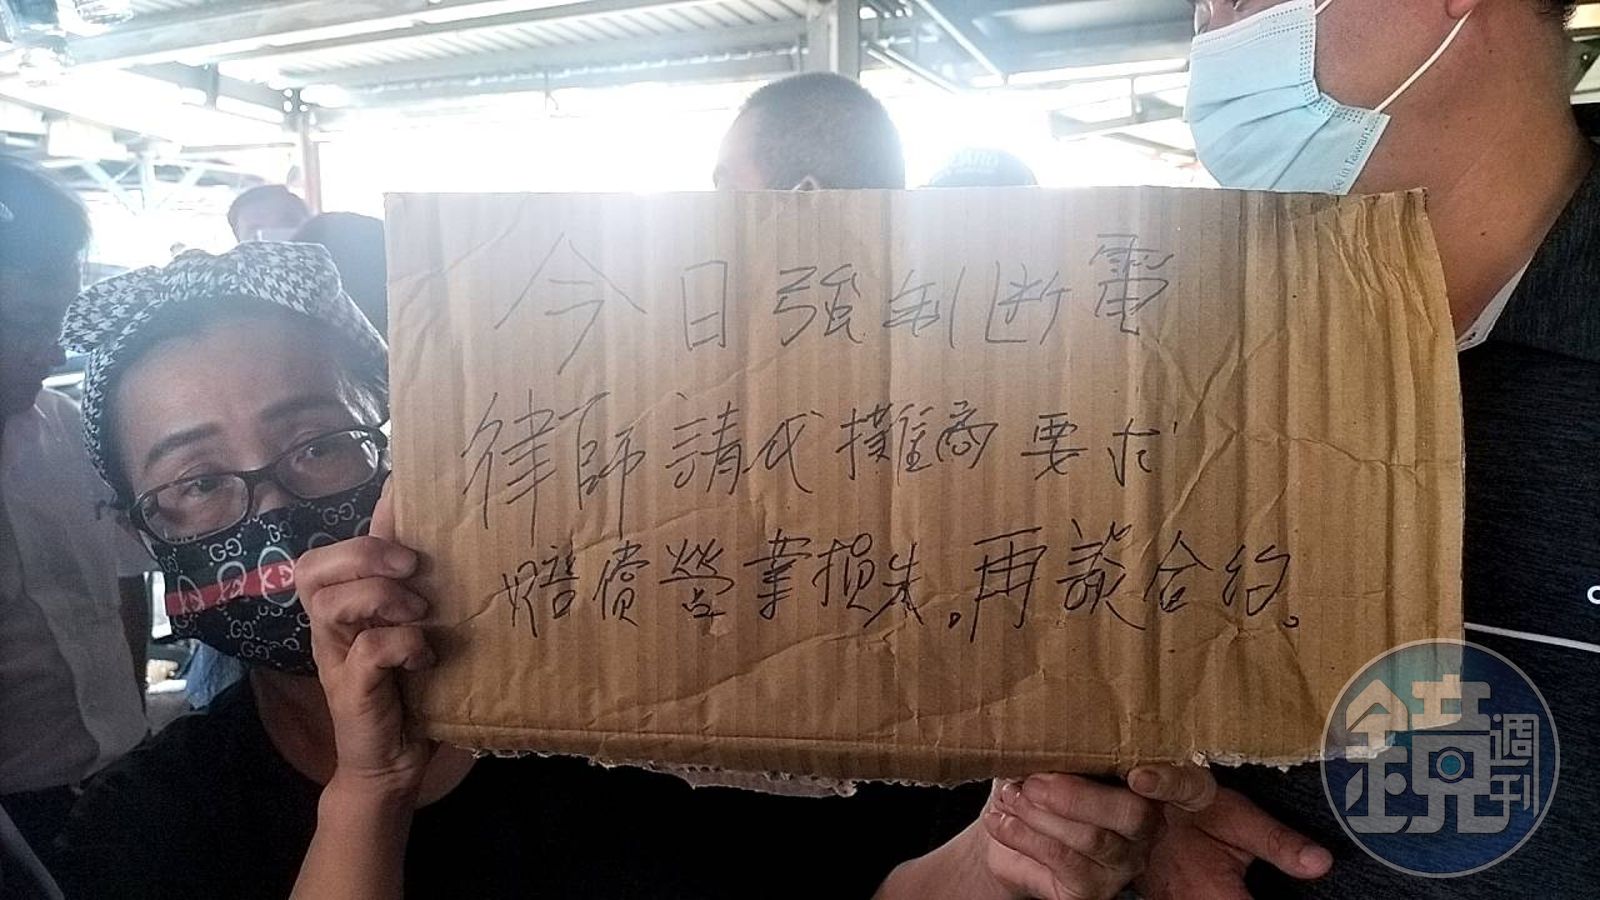 今日強制断電
律師請代攤商要求
賠償營業損失。再談合約。
鏡週刊
Made in Taiwan
GG